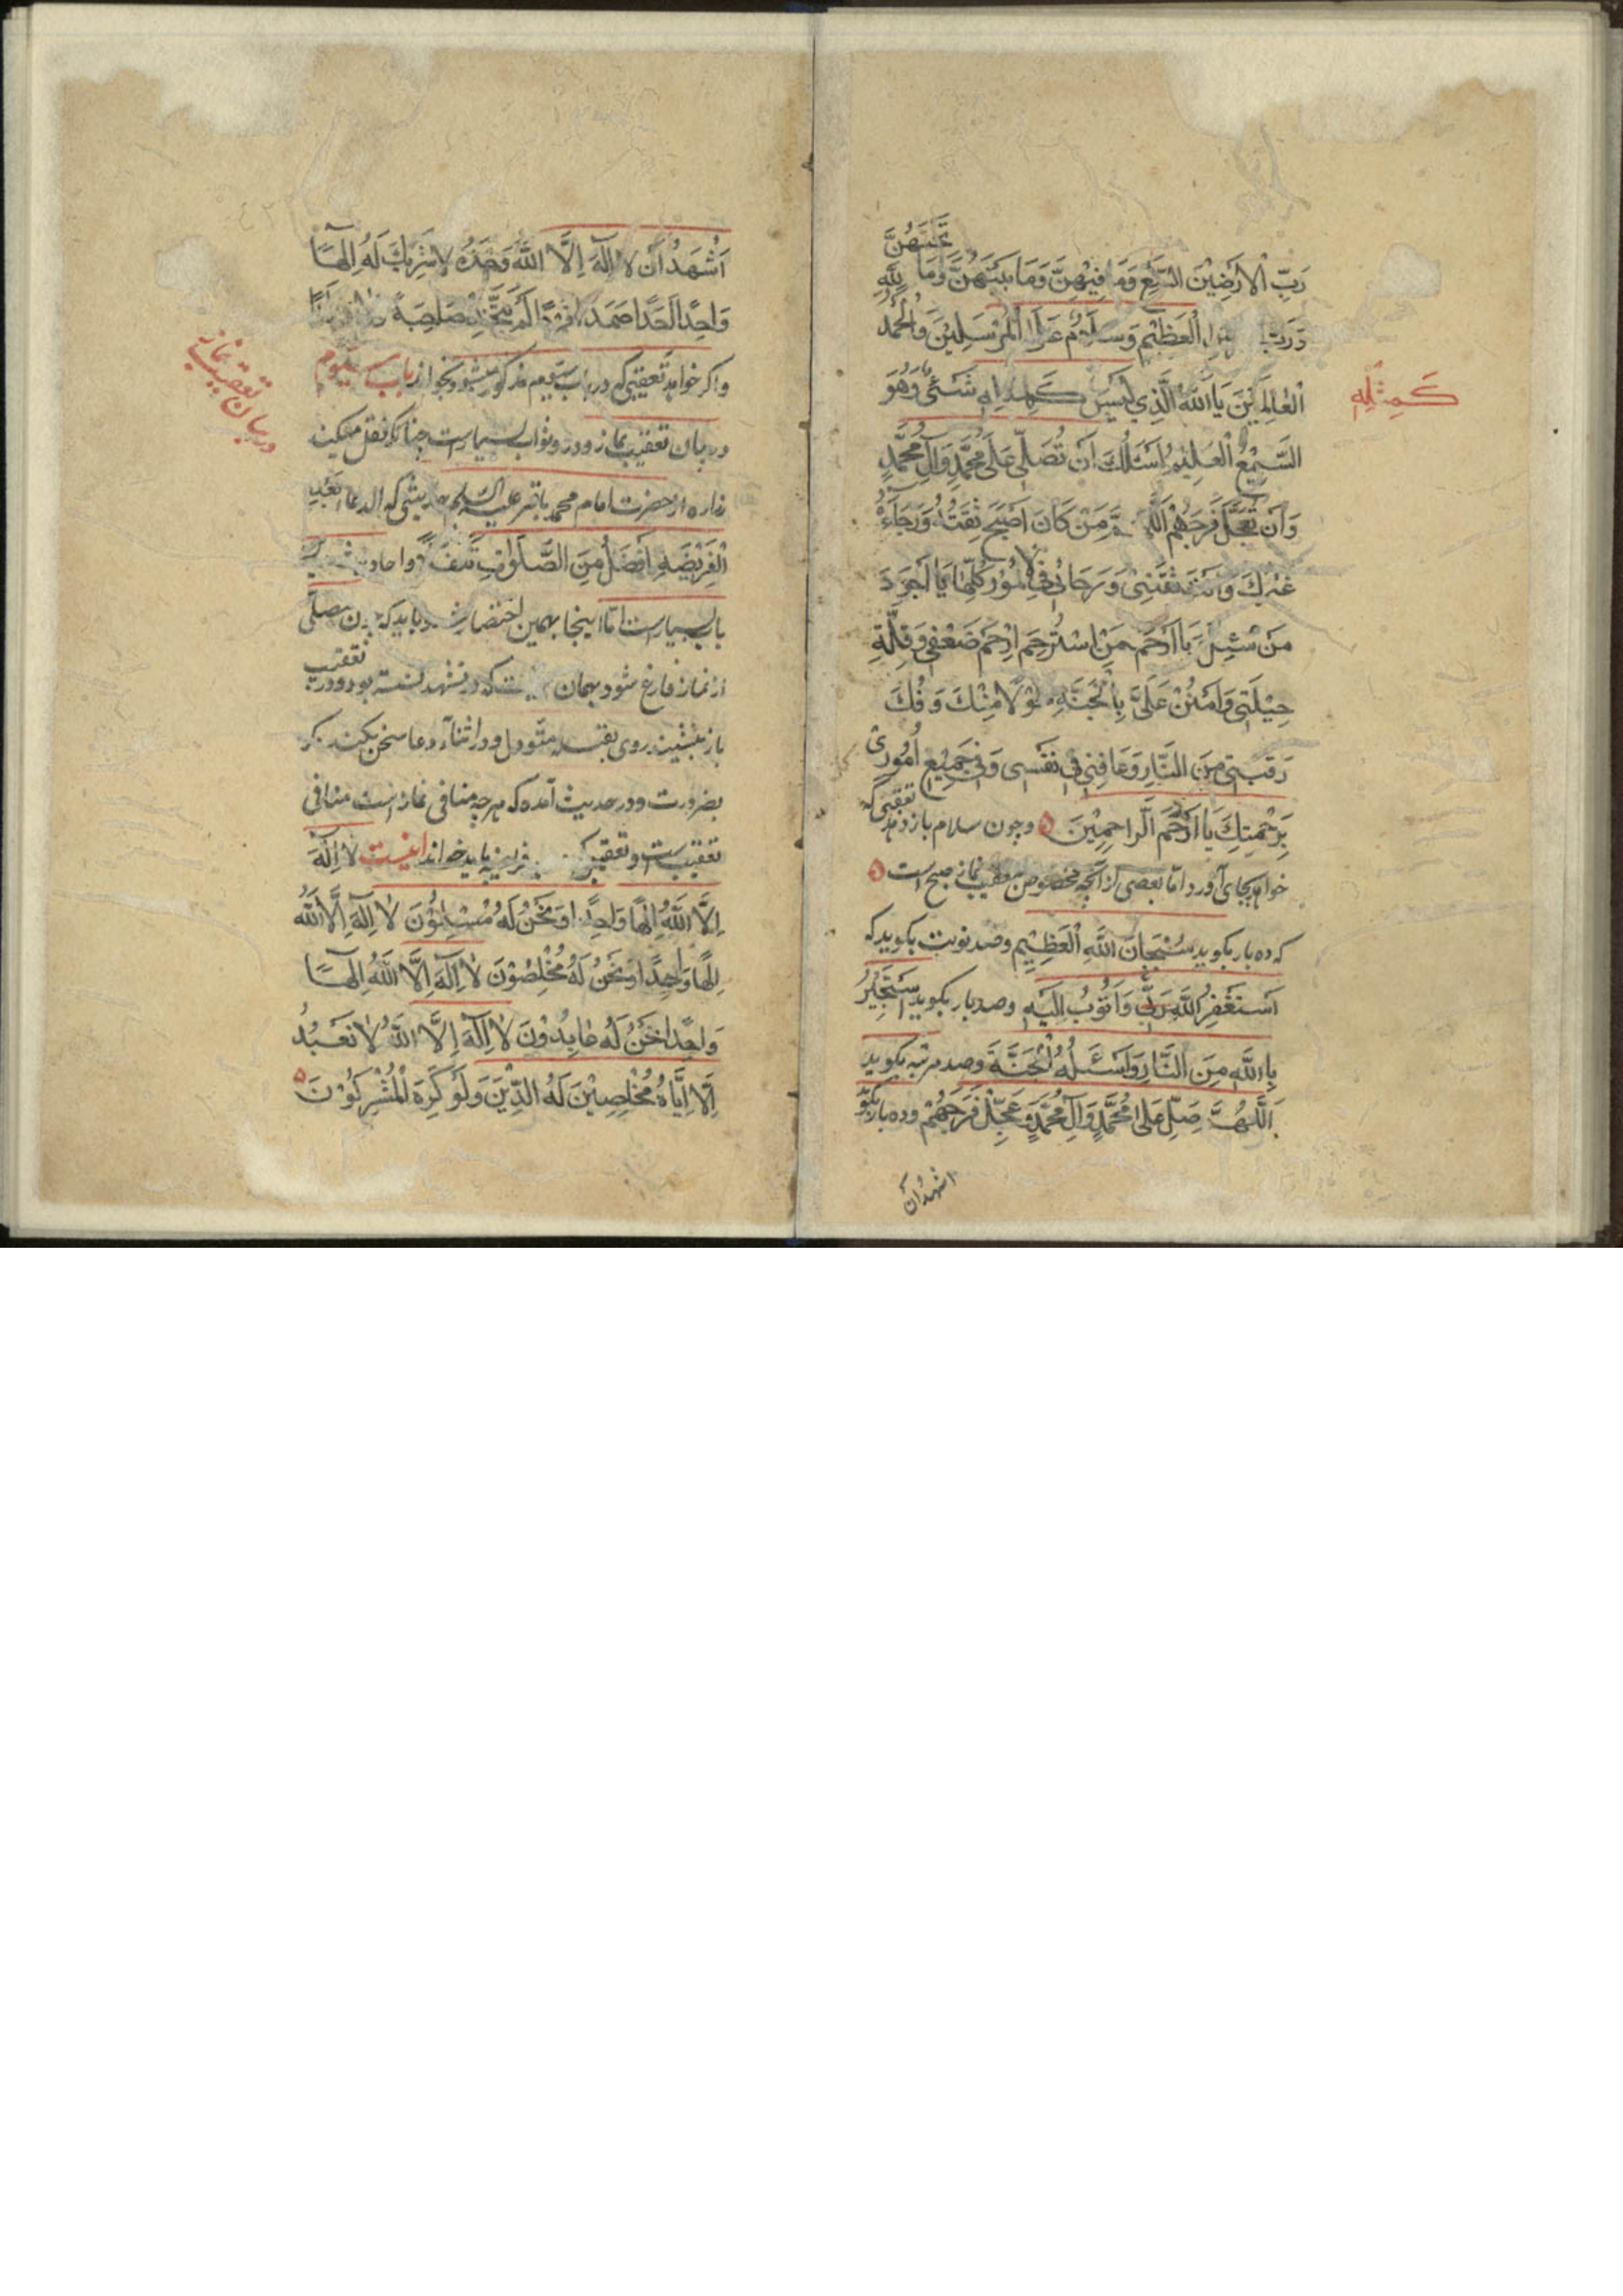 تحتهن
رب الارضين السبع وما فيهن وما بينهن وما لله
ورب العظيم وسلام على المرسلين والحمد
العالمين يا الله الذي ليس كمثله شئ وهو
كمثله
السميع العليم اسئلك ان تصلى على محمد وآل محمد
وان تعجل فرجهم من كان اصبح ثقته ورجاءه
غيرك وانت ثقتى ورجائى في الامور كلها يا اجود
من سئل يا ارحم من استرحم ارحم ضعفى وقلة
حيلتى وامنن على بالجنة طولا منك وفك
رقبتى من النار وعافنى في نفسى وفى جميع امورى
برحمتك يا ارحم الراحمين وچون سلام باز دهد تعقيبى كه
خواهد بجاى آورد اما بعضى از آنچه مخصوص تعقيب نماز صبح است
كه ده بار بكويد سبحان الله العظيم وصد نوبت بكويد كه
استغفر الله ربى واتوب اليه وصد بار بكويد استجير
بالله من النار واسئله الجنة وصد مرتبه بكويد
اللهم صل على محمد وآل محمد وعجل فرجهم وده بار بكويد
اشهد ان
اشهد ان لا اله الا الله وحده لا شريك له الها
واحدا احدا صمدا فردا لم يتخذ صاحبة
واكر خواهد تعقيبى كه در باب مذكور ميشود بخواند باب سيوم
در بيان تعقيب نماز
در بيان تعقيب نماز ودر وثواب بسيارست چنانكه نقل ميكند
زراره از حضرت امام محمد باقر عليه السلم كه الدعا بعد
الفريضة افضل من الصلوة تنفلا واحاديث
باب بسيارست اما اينجا بهمين اختصار شد وبايد كه چون مصلى
از نماز فارغ شود بهمان كه در تشهد نشسته بود ودر تعقيب
باز بنشيند روى بقبله ودر اثناء دعا سخن نكند مكر
بضرورت ودر حديث آمده كه هرچه منافى نماز است منافى
تعقيب است وتعقيبى فريضه بايد خواند اينست لا اله
الا الله الها واحدا ونحن له مسلمون لا اله الا الله
الها واحدا ونحن له مخلصون لا اله الا الله الها
واحدا نحن له عابدون لا اله الا الله لا نعبد
الا اياه مخلصين له الدين ولو كره المشركون